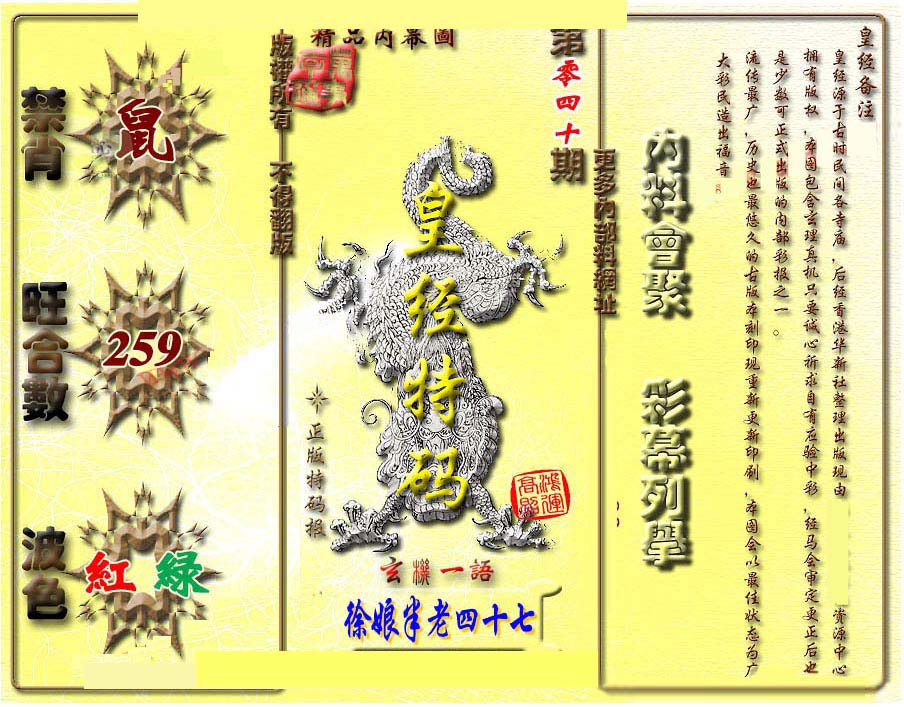 精品內幕圖
禁肖
鼠
旺合數
259
波色
紅 綠
版權所有 不得翻版
第零四十期
皇经特码
正版特码报
鴻運高照
玄機一語
徐娘半老四十七
更多內部料網址
內料會聚 彩幕列舉
皇经备注
皇经源于古时民间各寺庙，后经香港华新社整理出版现由 资源中心
拥有版权，本图包含玄理真机只要诚心祈求自有应验中彩，经马会审定更正后也
是少数可正式出版的内部彩报之一。
流传最广，历史也最悠久的古版本刻印现重新更新印刷，本图会以最佳状态为广
大彩民造出福音。